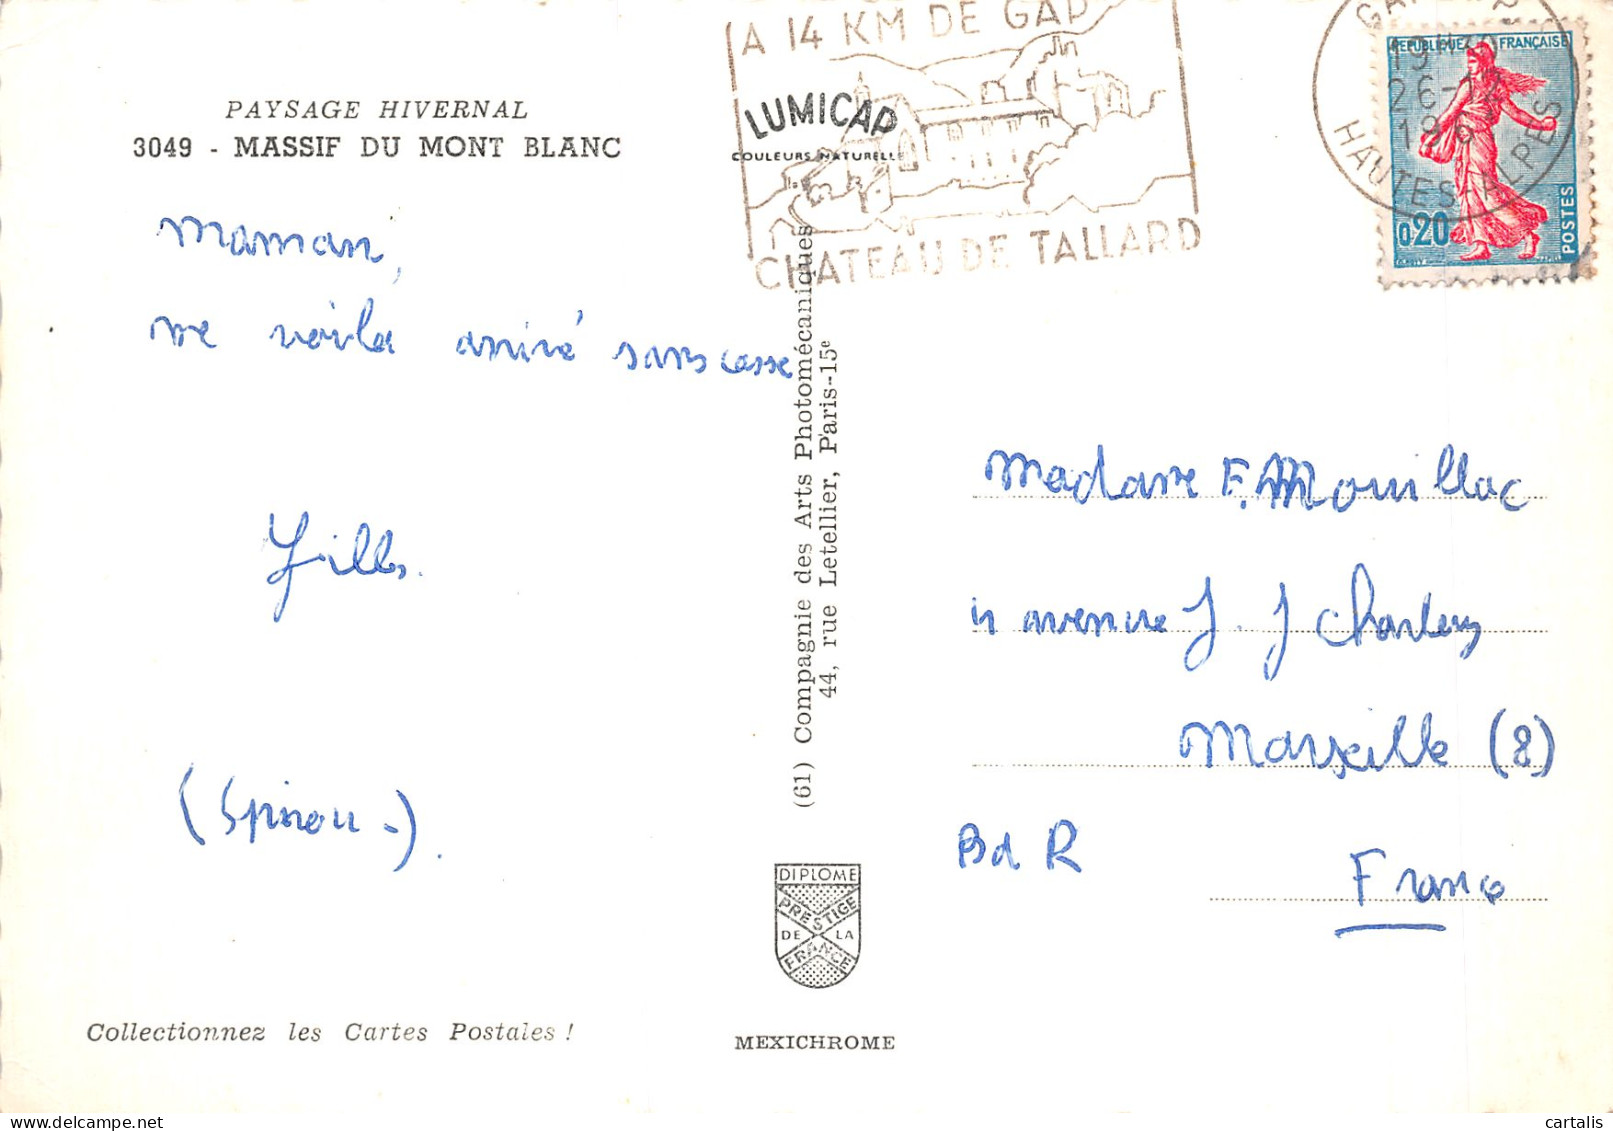 PAYSAGE HIVERNAL
3049 - MASSIF DU MONT BLANC
A 14 KM DE GAP
CHATEAU DE TALLARD
LUMICAP
COULEURS NATURELLES
HAUTES ALPES
REPUBLIQUE FRANÇAISE
0,20
POSTES
maman,
me voila arrivé sans casse
Gilles.
(Spirou-).
(61) Compagnie des Arts Photomécaniques
44, rue Letellier, Paris-15e
Madame F. Mouillac
avenue J. J
Marseille (8)
Bd R
France
DIPLOME
PRESTIGE
DE LA
FRANCE
Collectionnez les Cartes Postales !
MEXICHROME
cartalis